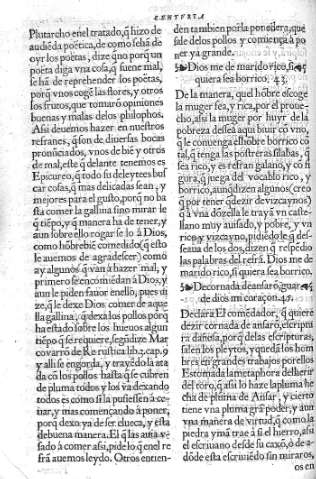 CENTVRIA
Plutarcho en el tratado, q̃ hizo de
audiẽda poëtica, de como se hã de
oyr los poëtas, dize q̃no porq̃ un
poëta diga vna cosa, q̃ suene mal,
se ha de reprehender los poëtas,
porq̃ vnos cogẽ las flores, y otros
los frutos, que tomarõ opiniones
buenas y malas delos philosophos.
Asi deuemos hazer en nuestros
refranes, q̃son de diuersas bocas
pronũciados, vnos de biẽ y otros
de mal, este q̃ delante tenemos es
Epicureo, q̃ todo su deleyte es bus
car cosas, q̃ mas delicadas sean, y
mejores para el gusto, porq̃ no ba
sta comer la gallina sino mirar le
q̃ tiẽpo, y q̃ manera ha de tener, y
aun sobre ello rogar se lo à Dios,
como hõbre biẽ comedido (q̃ esto
le auemos de agradescer) como
ay algunos q̃ van à hazer mal, y
primero se encomiẽdan à Dios, y
aun le piden fauor enello, pues di
ze, q̃ le dexe Dios comer de aque
lla gallina, q̃ dexa los pollos porq̃
ha estado sobre los hueuos algun
tiẽpo q̃ se requiere, segũ dize Mar
co varro de Re rustica lib. 3. cap. 9
y alli se engorda, y trayẽdo la ata
da cõ los pollos hasta q̃ se cubren
de pluma todos y los va dexando
todos es como si la pusiessẽn à ce-
uar, y mas començando à poner,
porq̃ dexo ya de ser clueca, y esta
de buena manera. El q̃ las aura v-
sado à comer asi, pide lo q̃ enel re
frã auemos leydo. Otros entien-
den tambien por la ponedera, quẽ
sale delos pollos y comiença à po
ner ya grande.
Dios me de marido rico, si
quiera sea borrico. 43.
De la manera, quel hõbre escoge
la muger fea, y rica, por el proue-
cho, asi la muger por huyr dela
pobreza dessea aqui biuir cõ vno,
q̃ le comuenga el hõbre borrico cõ
tal, q̃ tenga las postreras silabas, q̃
sea rico, y es refran galano, y cõ si
gura, q̃ juega del vocablo rico, y
borrico, aunq̃ dizen algunos (creo
q̃ por tener q̃ dezir de vizcaynos)
q̃ à vna dõzella le traya vn caste-
llano muy auisado, y pobre, y va
rico y vizcayno, pidiẽdo le q̃ des-
seaua de los dos, dizen q̃ respõdio
las palabras del refrã. Dios me de
marido rico, si quiera sea borrico.
De cornada de ansarõ, guar
de dios mi coraçon. 45.
Declara El comẽdador, q̃ quiere
dezir cornada de ansarõ, escriptu
ra dañosa, porq̃ delas escripturas,
salen los pleytos, y quedã los hom
bres en grandes trabajos por ellos
Es tomada la metaphora del herir
del toro, q̃ asi lo haze la pluma he
cha de pluma de Ansar, y cierto
tiene vna pluma grã poder, y aun
vna manera de virtud, q̃ como la
piedra ymã trae à si el hierro, asi
el escriuano desde su caxõ, ò de a-
dõde esta escriuiẽdo sin miraros,
os en